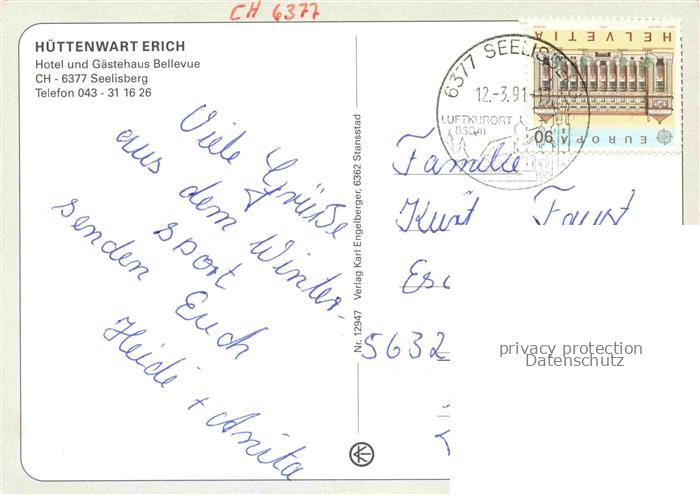 CH 6377
HÜTTENWART ERICH
Hotel und Gästehaus Bellevue
CH - 6377 Seelisberg
Telefon 043 - 31 16 26
Viele Grüße
aus dem Winter-
sport
senden Euch
Heidi + Anita
Nr. 12947 Verlag Karl Engelberger, 6362 Stansstad
HELVETIA
EUROPA
90
6377 SEELISBERG
12.-3.91-
LUFTKURORT
850m
Familie
Kurt Faust
5632
privacy protection
Datenschutz